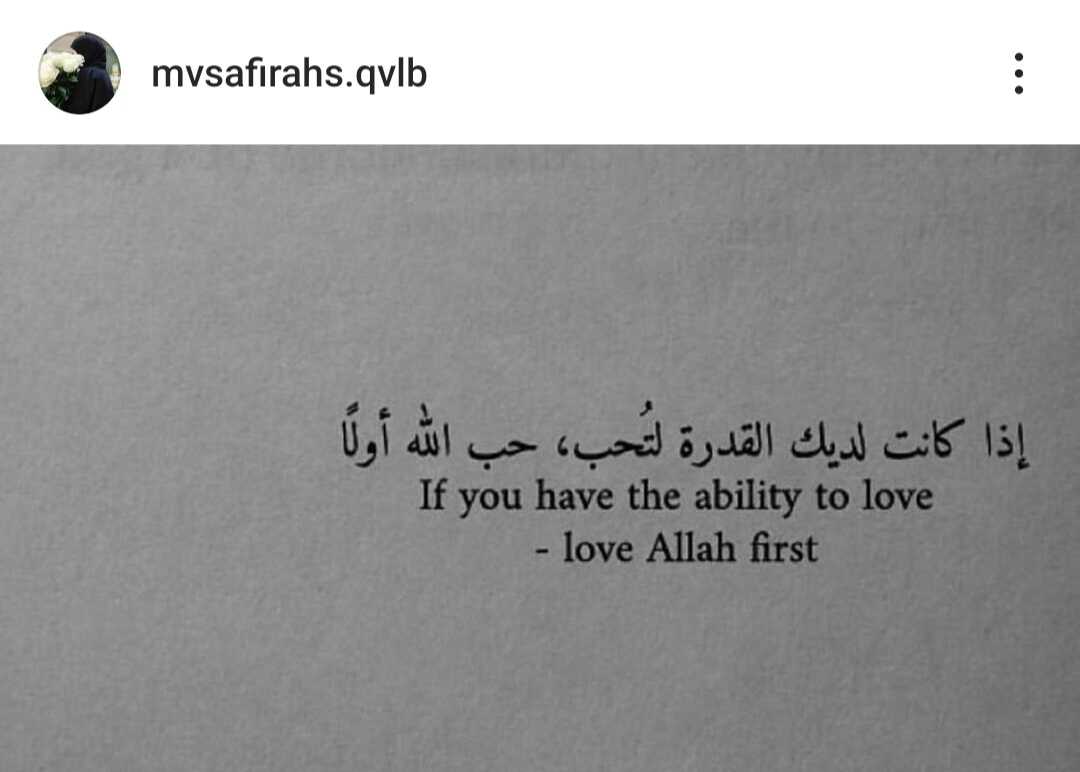 mvsafirahs.qvlb
إذا كانت لديك القدرة لتُحب، حب الله أولًا
If you have the ability to love
- love Allah first